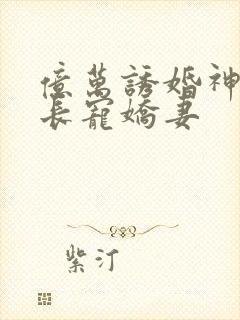 億萬誘婚神
長寵嬌妻
紫汀